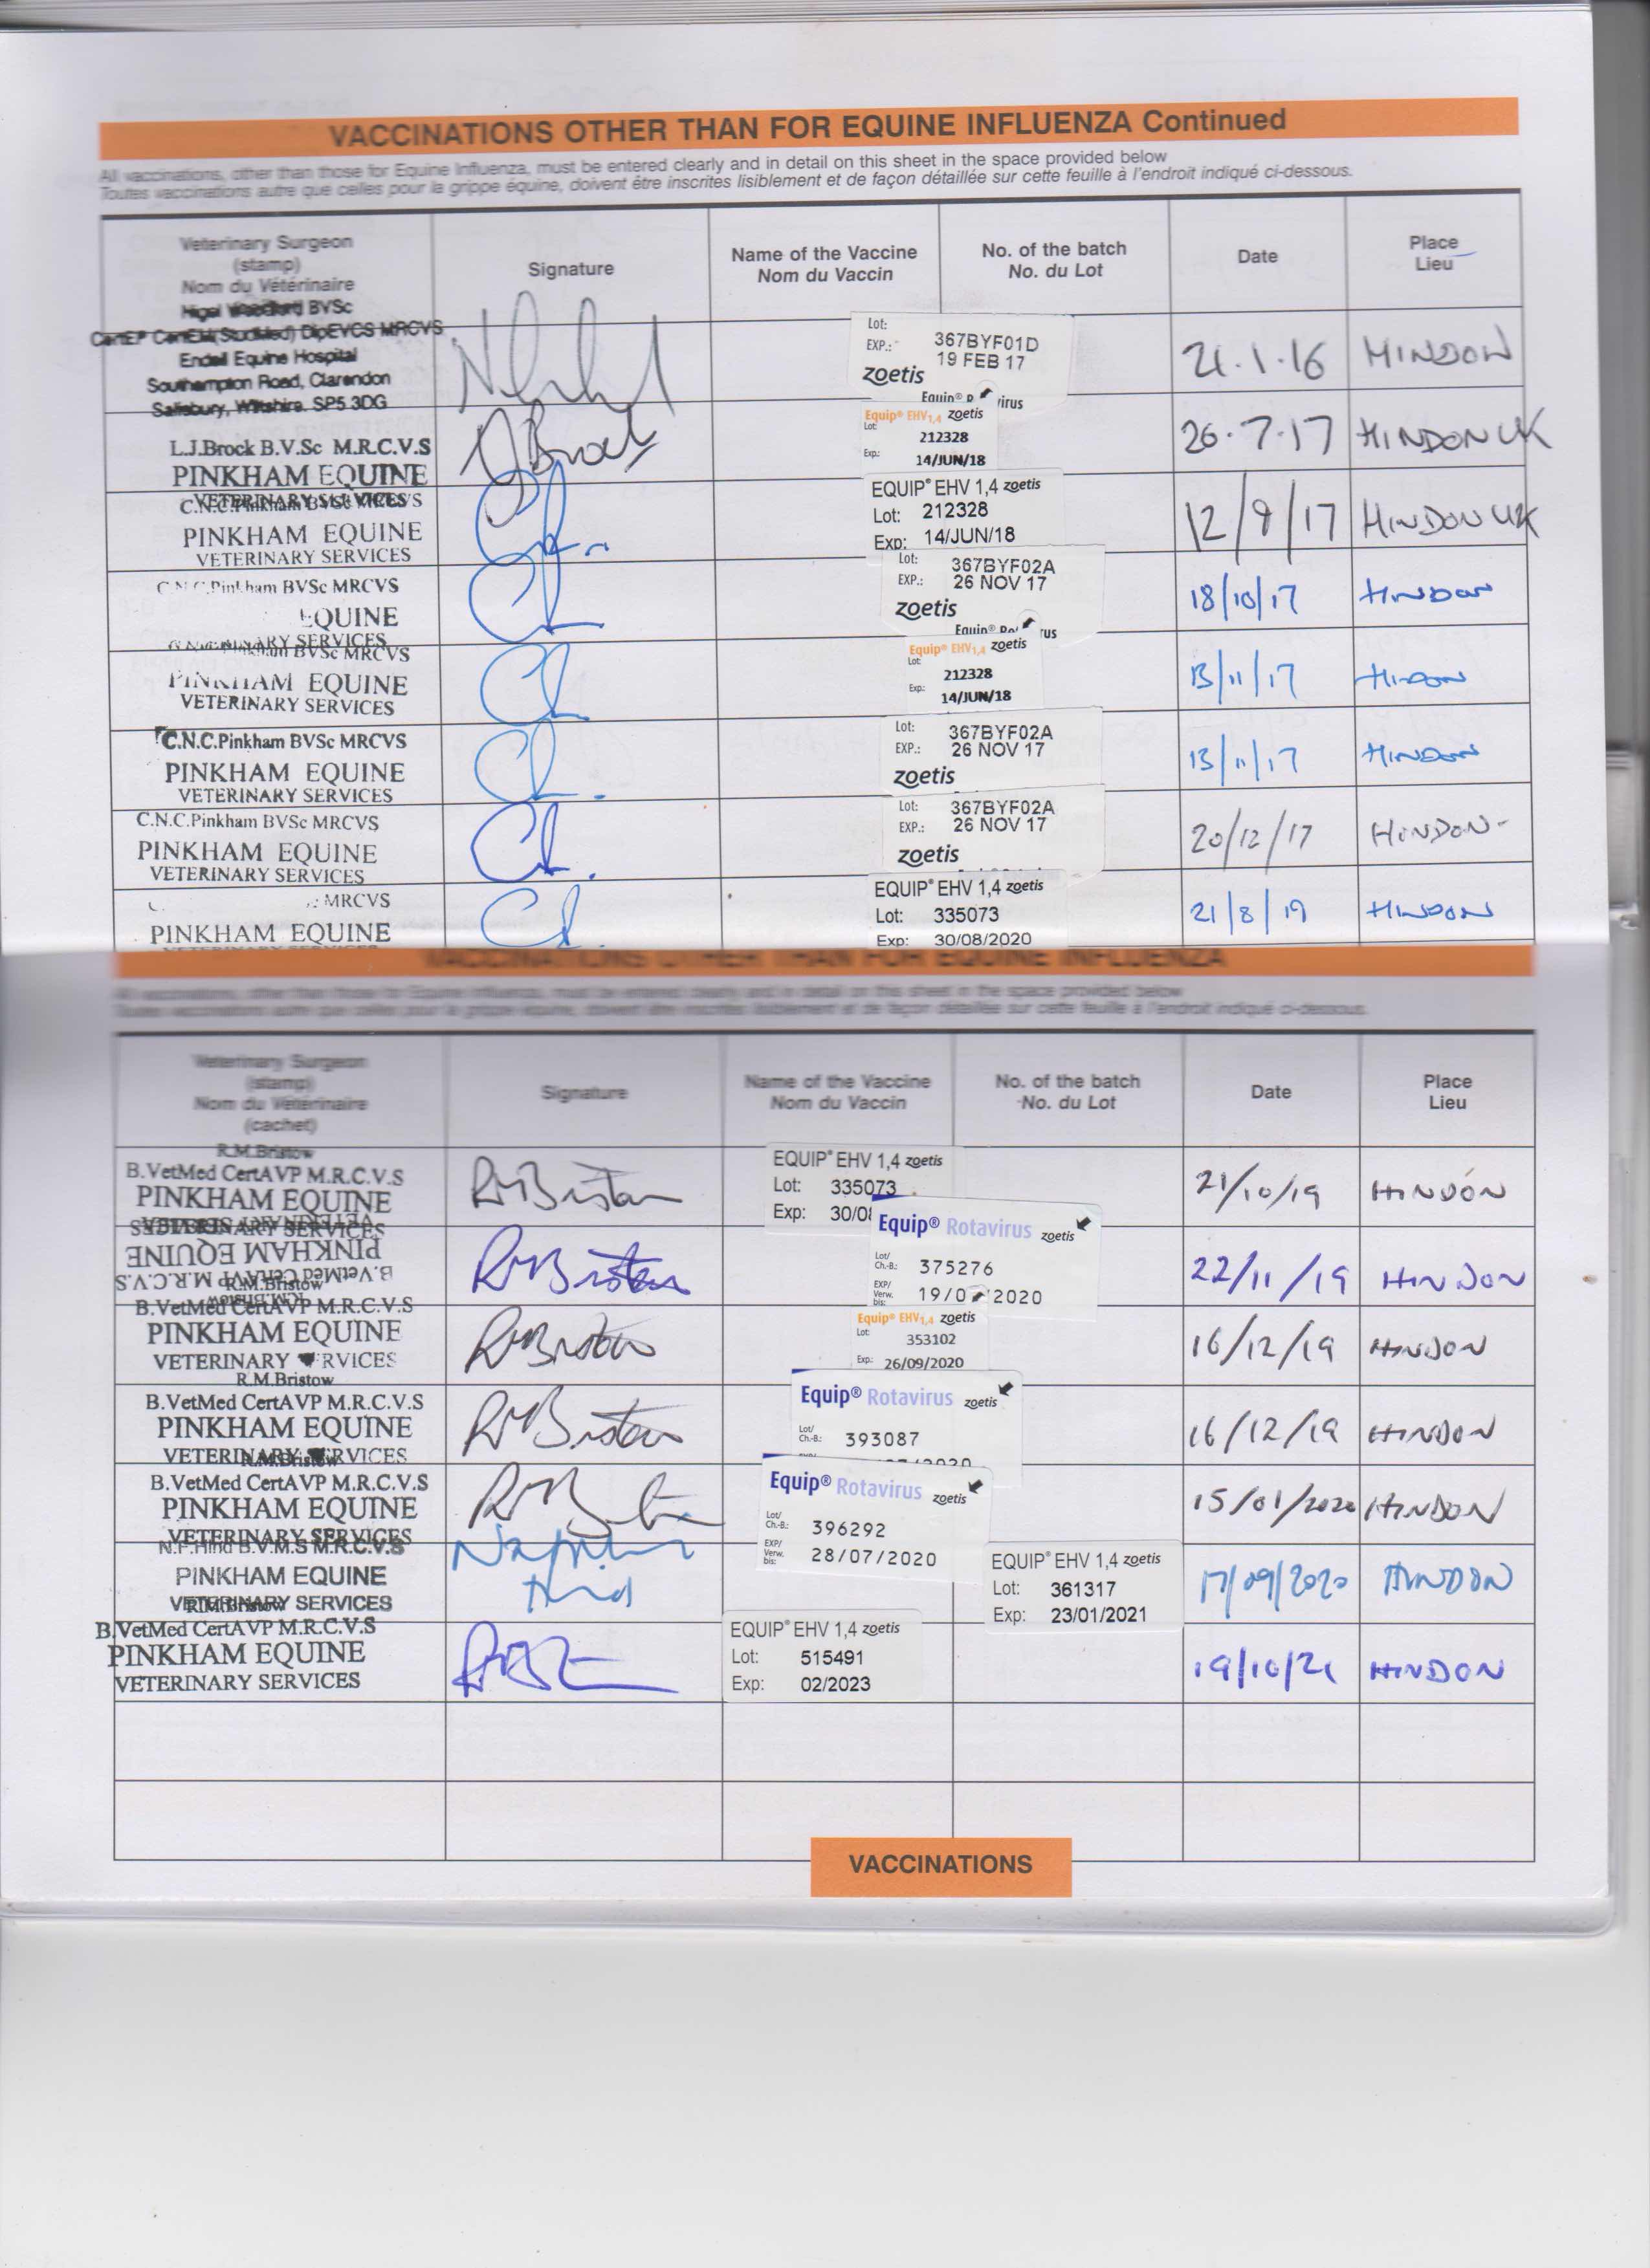 VACCINATIONS OTHER THAN FOR EQUINE INFLUENZA Continued
All vaccinations, other than those for Equine Influenza, must be entered clearly and in detail on this sheet in the space provided below
Toutes vaccinations autre que celles pour la grippe équine, doivent être inscrites lisiblement et de façon détaillée sur cette feuille à l'endroit indiqué ci-dessous.
Veterinary Surgeon
(stamp)
Nom du Vétérinaire
Signature
Name of the Vaccine
Nom du Vaccin
No. of the batch
No. du Lot
Date
Place
Lieu
Nigel BVSc
CertEP CertEM(StudMed) DipEVCS MRCVS
Endell Equine Hospital
Southampton Road, Clarendon
Salisbury, Wiltshire. SP5 3DG
Lot: 367BYF01D
EXP.: 19 FEB 17
zoetis
Equip®
virus
21.1.16 HINDON
L.J.Brock B.V.Sc M.R.C.V.S
PINKHAM EQUINE
VETERINARY SERVICES
Brock
Equip® EHV1,4 zoetis
Lot: 212328
Exp: 14/JUN/18
26.7.17 HINDON UK
C.N.C.Pinkham BVSc MRCVS
PINKHAM EQUINE
VETERINARY SERVICES
EQUIP® EHV 1,4 zoetis
Lot: 212328
Exp: 14/JUN/18
12/9/17 HINDON UK
C.N.C.Pinkham BVSc MRCVS
EQUINE
SERVICES
Lot: 367BYF02A
EXP.: 26 NOV 17
zoetis
Equip®
rus
18/10/17 HINDON
BVSc MRCVS
PINKHAM EQUINE
VETERINARY SERVICES
Equip® EHV1,4 zoetis
Lot: 212328
Exp: 14/JUN/18
13/11/17 HINDON
C.N.C.Pinkham BVSc MRCVS
PINKHAM EQUINE
VETERINARY SERVICES
Lot: 367BYF02A
EXP.: 26 NOV 17
zoetis
13/11/17 HINDON
C.N.C.Pinkham BVSc MRCVS
PINKHAM EQUINE
VETERINARY SERVICES
Lot: 367BYF02A
EXP.: 26 NOV 17
zoetis
20/12/17 HINDON
MRCVS
PINKHAM EQUINE
EQUIP® EHV 1,4 zoetis
Lot: 335073
Exp: 30/08/2020
21/8/19 HINDON
VACCINATIONS OTHER THAN FOR EQUINE INFLUENZA
All vaccinations, other than those for Equine Influenza, must be entered clearly and in detail on this sheet in the space provided below
Toutes vaccinations autre que celles pour la grippe équine, doivent être inscrites lisiblement et de façon détaillée sur cette feuille à l'endroit indiqué ci-dessous.
Veterinary Surgeon
(stamp)
Nom du Vétérinaire
(cachet)
Signature
Name of the Vaccine
Nom du Vaccin
No. of the batch
No. du Lot
Date
Place
Lieu
R.M.Bristow
B.VetMed CertAVP M.R.C.V.S
PINKHAM EQUINE
VETERINARY SERVICES
RMBristow
EQUIP® EHV 1,4 zoetis
Lot: 335073
Exp: 30/0
21/10/19 HINDON
PINKHAM EQUINE
B.VetMed CertAVP M.R.C.V.S
R.M.Bristow
RMBristow
Equip® Rotavirus zoetis
Lot/
Ch.-B.: 375276
EXP/
Verw.
bis: 19/0 2020
22/11/19 HINDON
R.M.Bristow
B.VetMed CertAVP M.R.C.V.S
PINKHAM EQUINE
VETERINARY RVICES
RMBristow
Equip® EHV1,4 zoetis
Lot: 353102
Exp: 26/09/2020
16/12/19 HINDON
R.M.Bristow
B.VetMed CertAVP M.R.C.V.S
PINKHAM EQUINE
VETERINARY RVICES
RMBristow
Equip® Rotavirus zoetis
Lot/
Ch.-B.: 393087
16/12/19 HINDON
R.M.Bristow
B.VetMed CertAVP M.R.C.V.S
PINKHAM EQUINE
VETERINARY SERVICES
Equip® Rotavirus zoetis
Lot/
Ch.-B.: 396292
EXP/
Verw.
bis: 28/07/2020
15/01/2020 HINDON
N.F.Hind B.V.M.S M.R.C.V.S
PINKHAM EQUINE
VETERINARY SERVICES
Hind
EQUIP® EHV 1,4 zoetis
Lot: 361317
Exp: 23/01/2021
17/09/2020 HINDON
R.M.Bristow
B.VetMed CertAVP M.R.C.V.S
PINKHAM EQUINE
VETERINARY SERVICES
EQUIP® EHV 1,4 zoetis
Lot: 515491
Exp: 02/2023
19/10/21 HINDON
VACCINATIONS